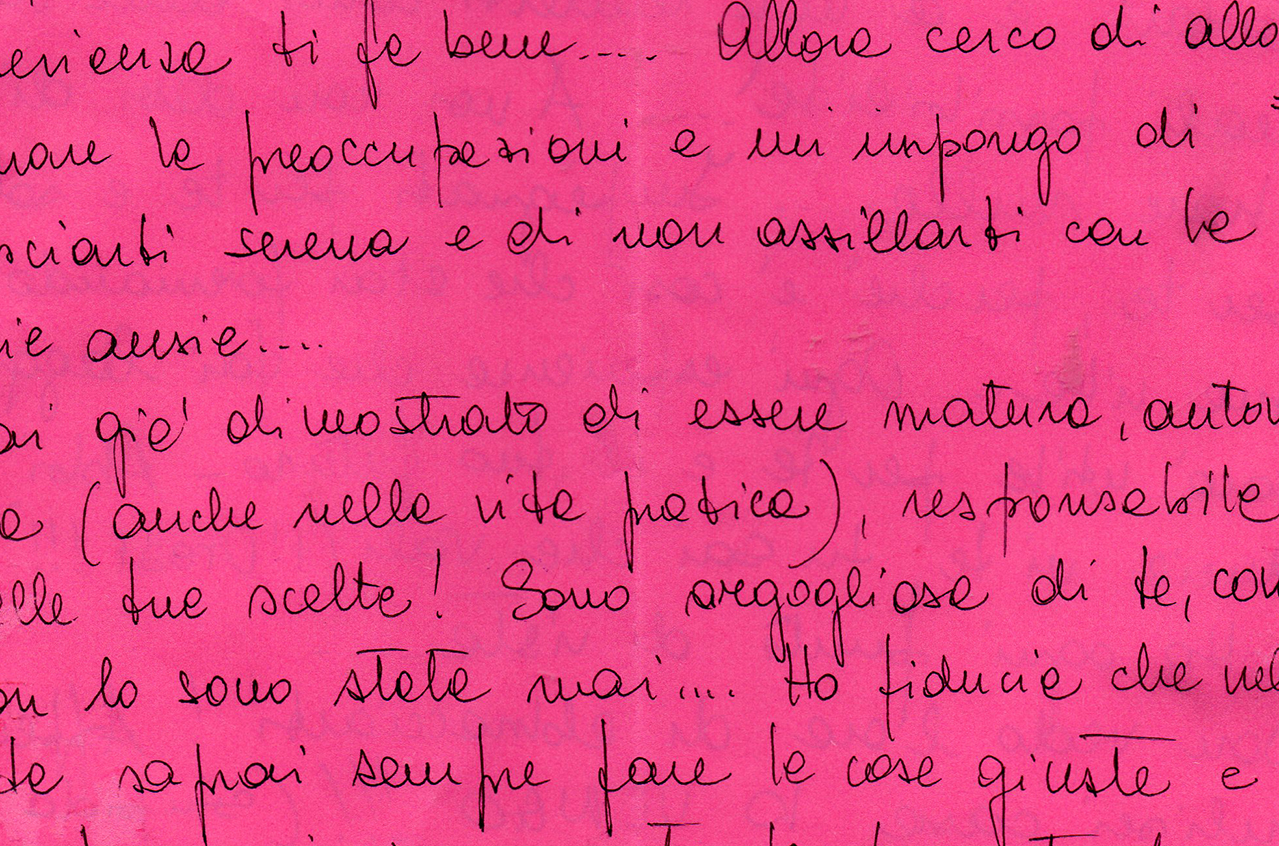 erienza ti fa bene.... Allora cerco di allo
nare le preoccupazioni e mi impongo di
sciarti serena e di non assillarti con le
ie ansie....
ai già dimostrato di essere matura, auton
a (anche nella vita pratica), responsabile
elle tue scelte! Sono orgogliosa di te, com
on lo sono stata mai.... Ho fiducia che nel
ta saprai sempre fare le cose giuste e